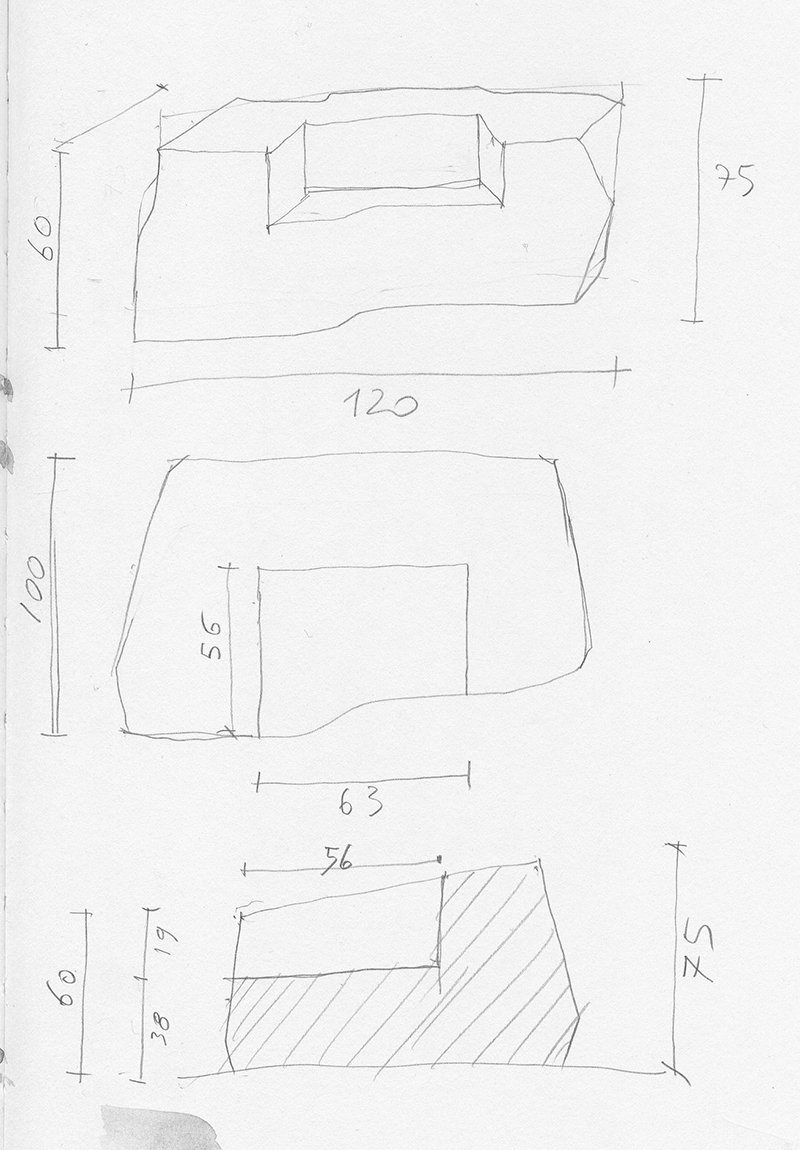 60
75
120
100
56
63
56
60
19
38
75